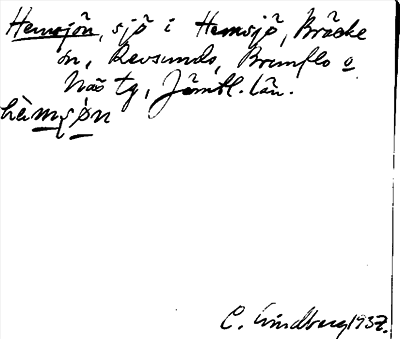 Hemsjön, sjö i Hemsjö, Bräcke
sn, Revsunds, Brunflo o
Näs tg, Jämtl. län.
hèmʂøn
C. Lindberg 1937.